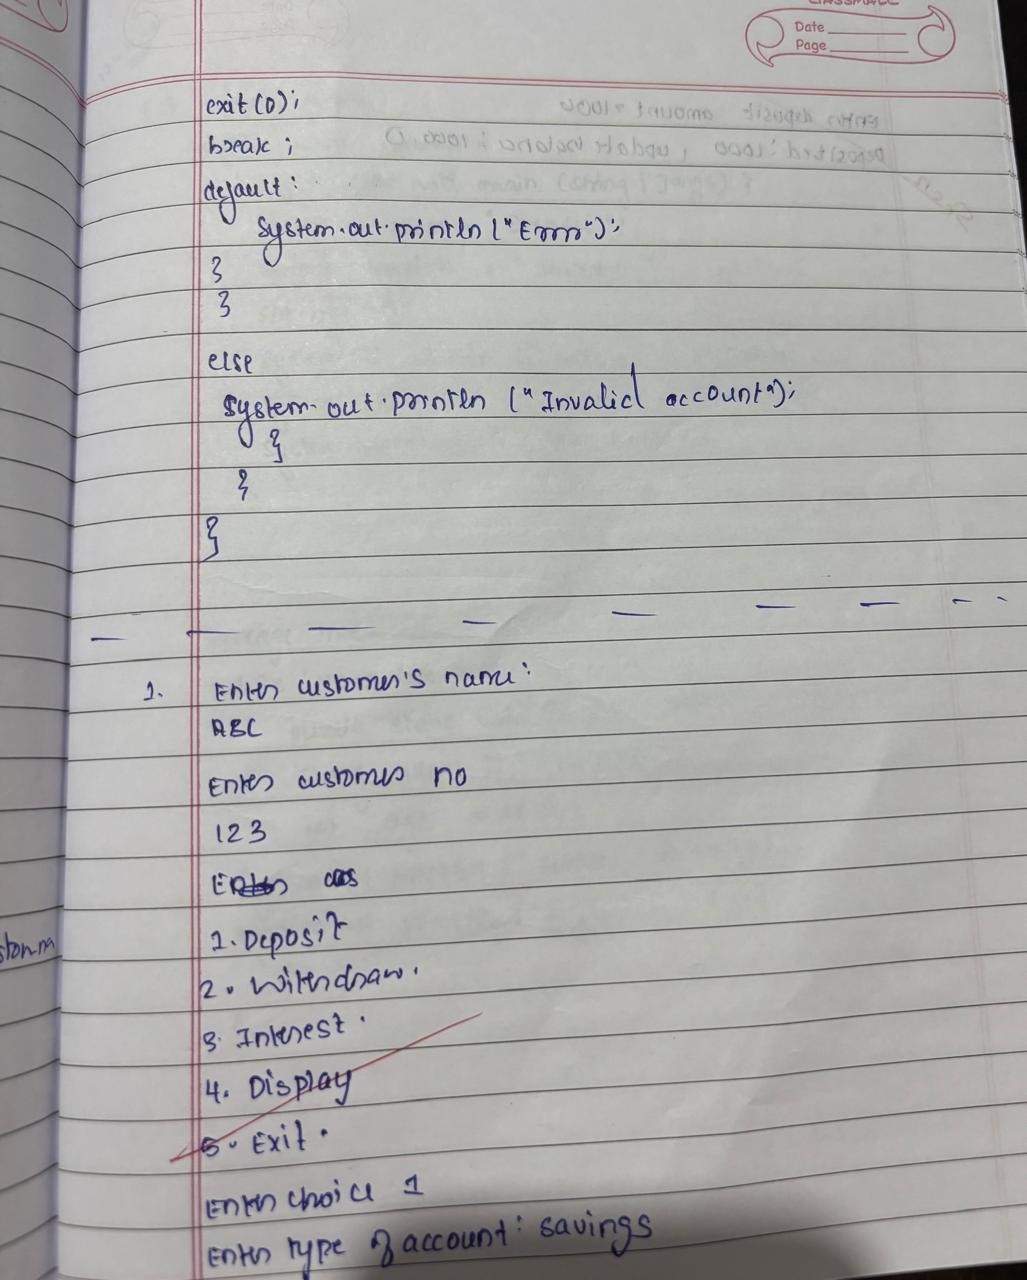 classmate
Date
Page
exit(0);
break;
default:
System.out.println("Error");
}
}
else
System.out.println("Invalid account");
}
}
}
1. Enter customer's name:
ABC
Enter customer no
123
1. Deposit
2. Withdraw.
3. Interest.
4. Display
5. Exit.
Enter choice 1
Enter type of account: savings